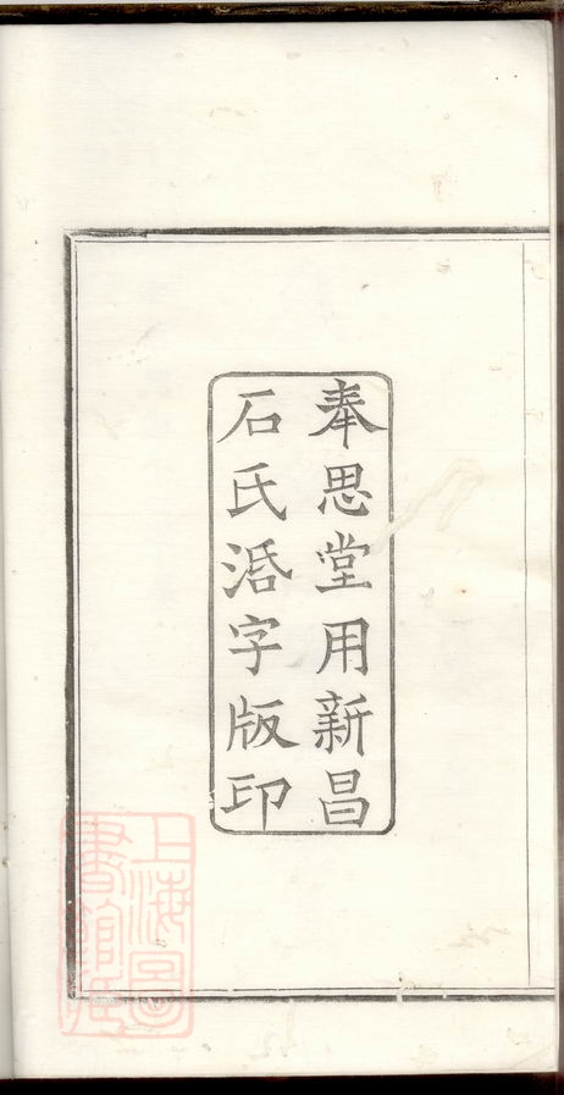 奉思堂用新昌
石氏湉字版印
上海圖
書館藏